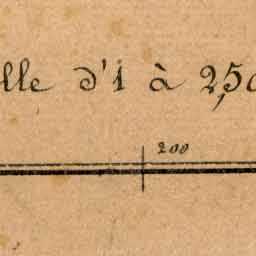 lle d'1 à 2,50
200